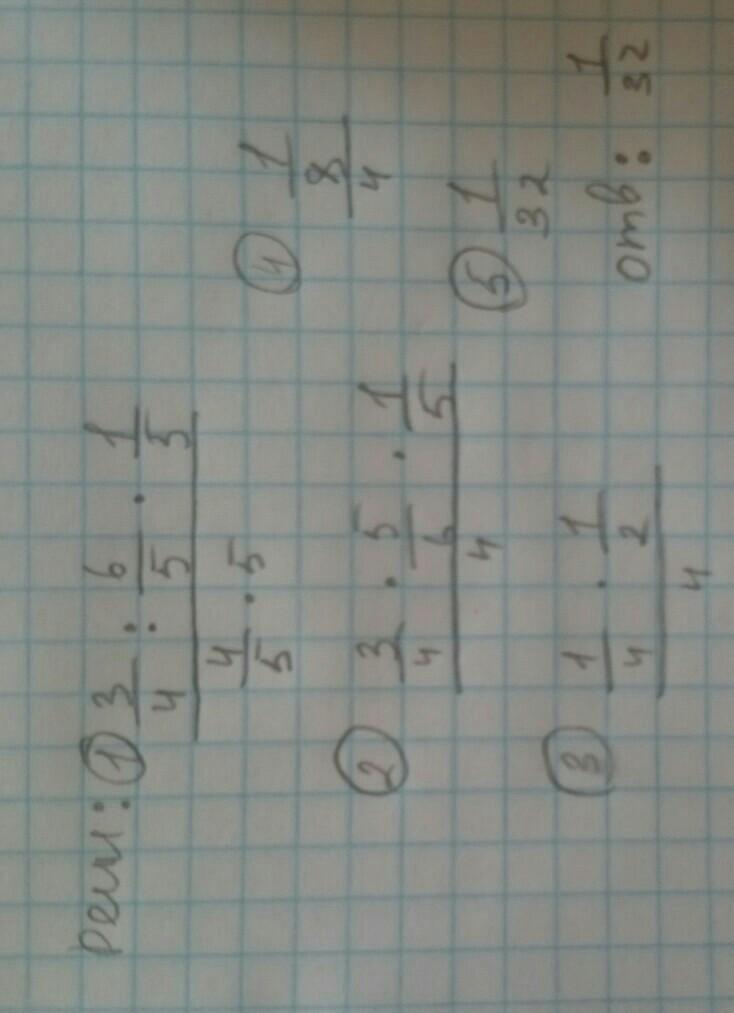 Реш: ① 3/4 : 6/5 · 1/5
4/5 · 5
② 3/4 · 5/6 · 1/5
4
③ 1/4 · 1/2
4
④ 1/8
4
⑤ 1/32
отв: 1/32